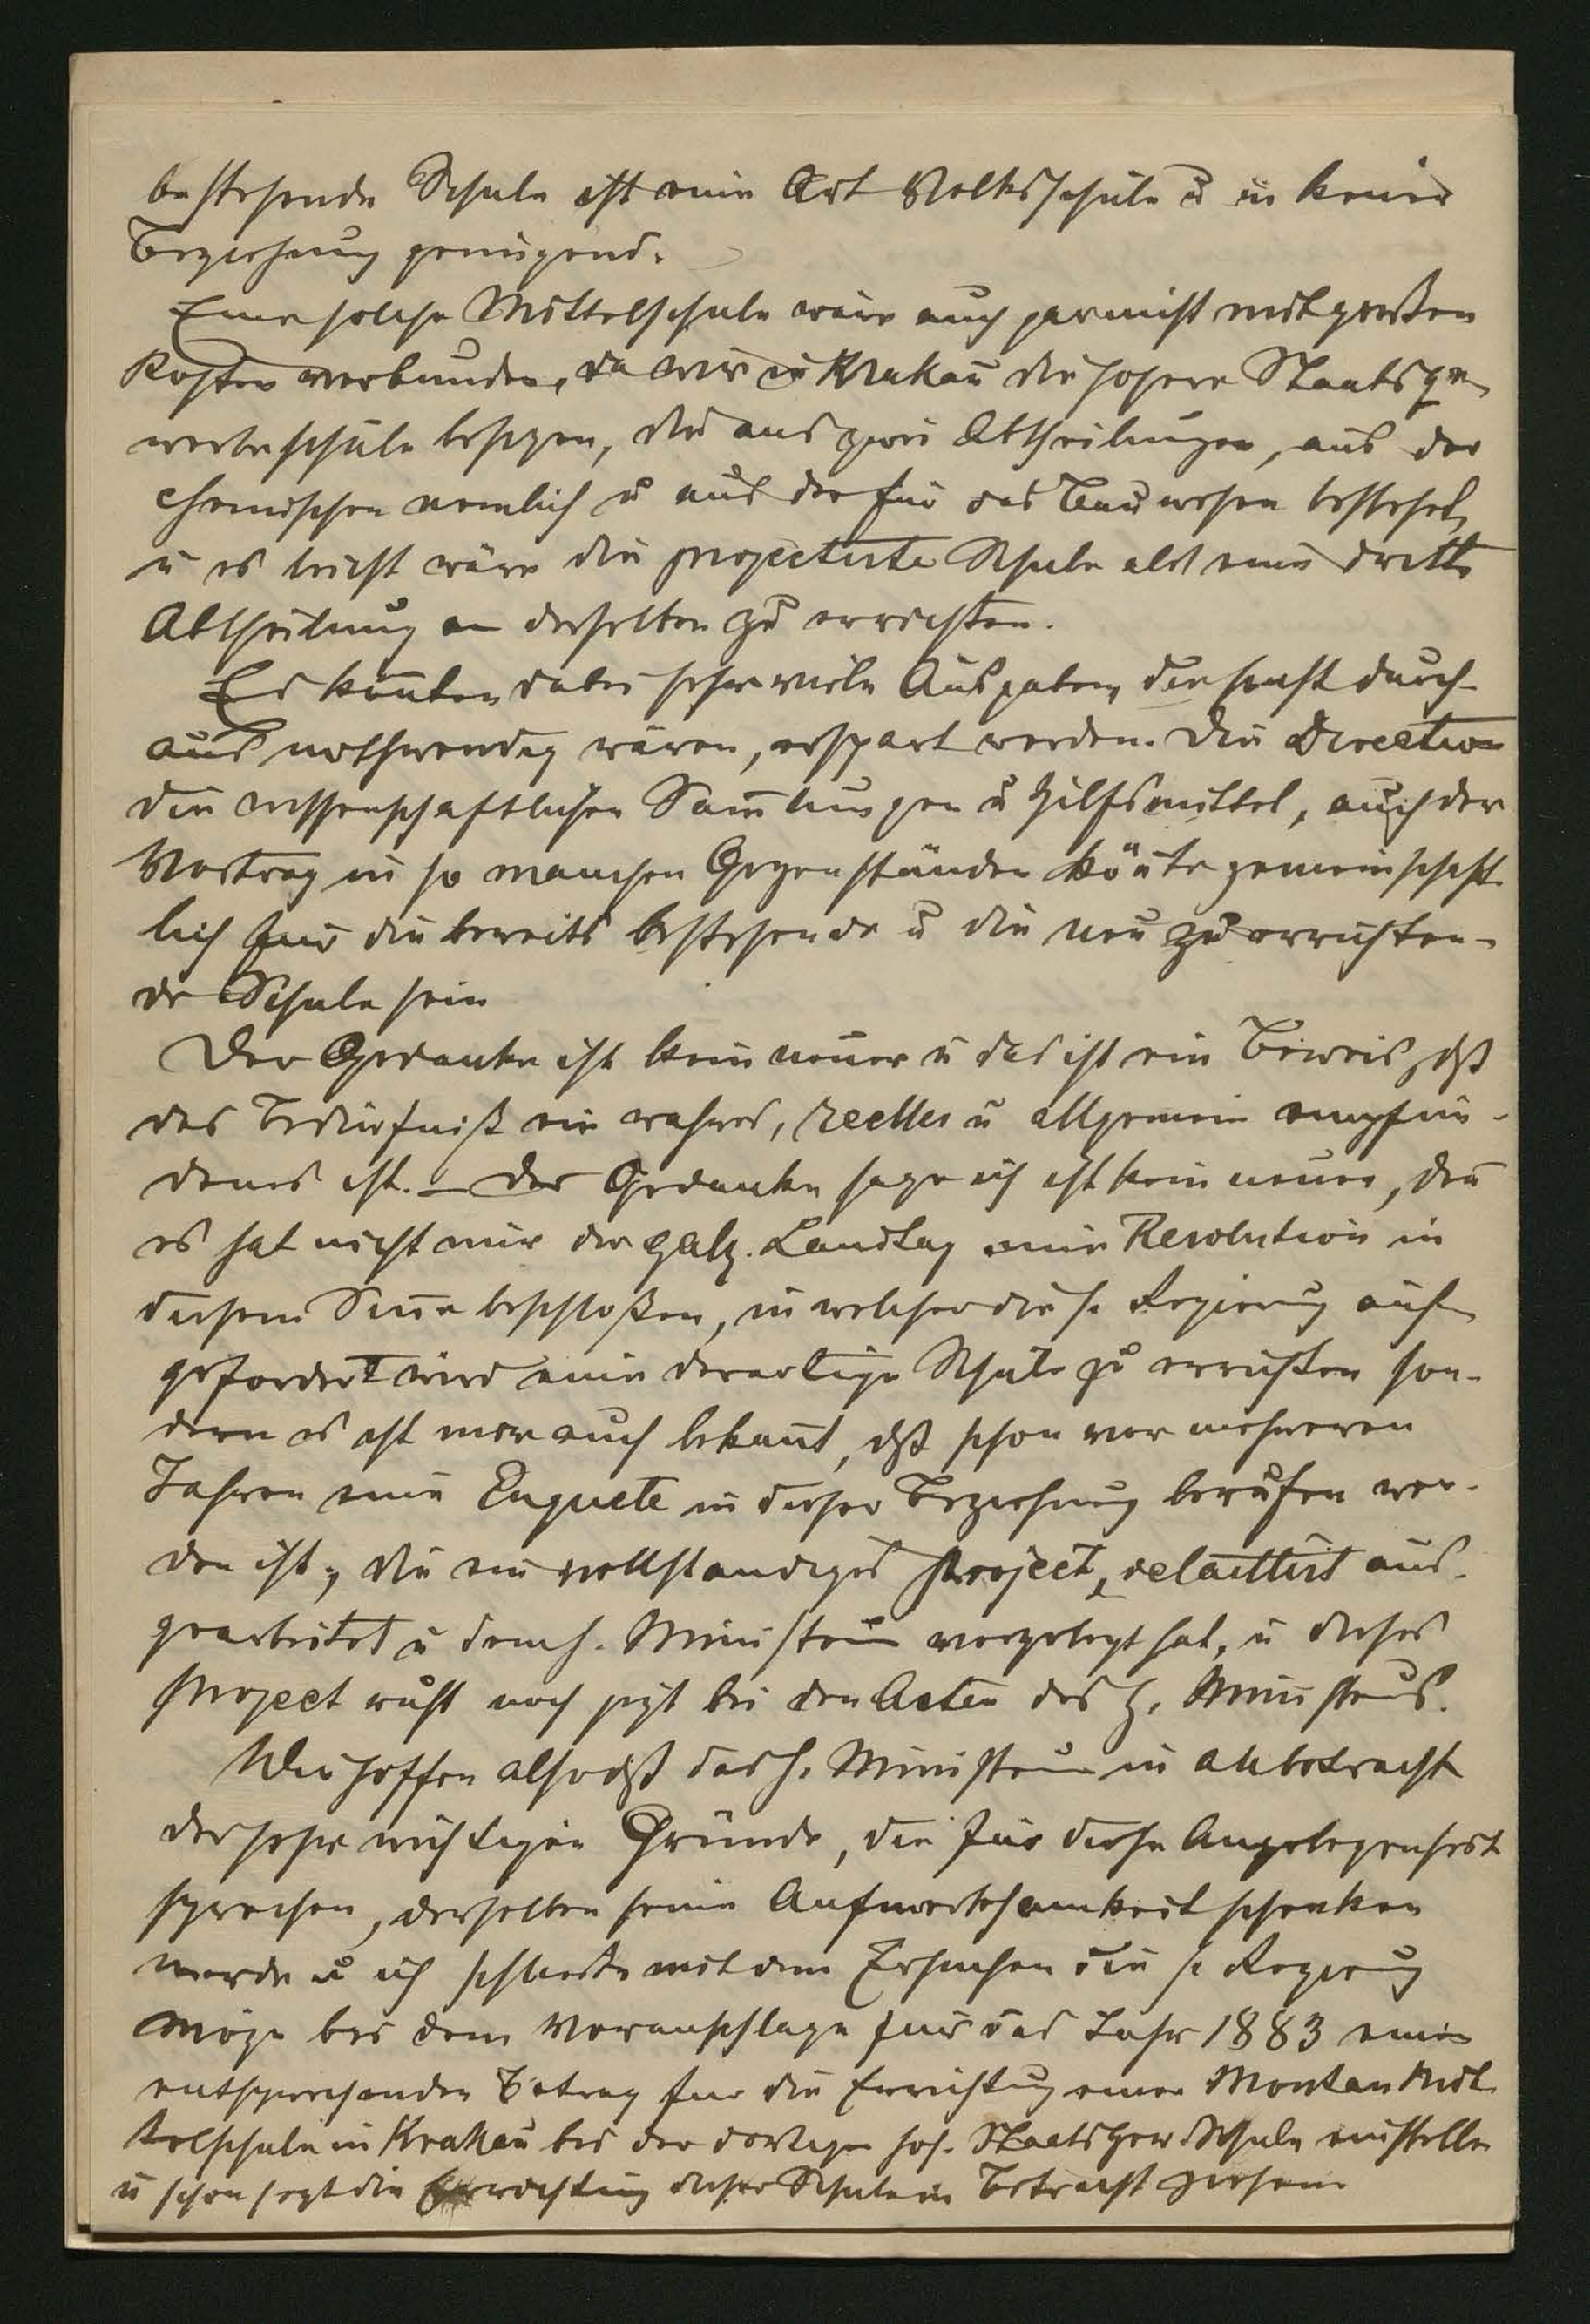 bestehende Schule ist eine Art Volksschule u in keiner
Beziehung genügend.
Eine solche Mittelschule wäre auch gar nicht mit großen
Kosten verbunden, da wir in Krakau die höhere Staatsge-
werbeschule besizen, die aus zwei Abtheilungen, aus der
chemischen nemlich u aus der für das Bauwesen besteht,
u es leicht wäre die projectirte Schule als eine dritte
Abtheilung an derselben zu errichten.
Es könten dabei sehr viele Ausgaben, die sonst durch-
aus nothwendig wären, erspart werden. Die Direction
die wissenschaftlichen Sam̄lungen u Hilfsmittel, auch der
Vortrag in so manchen Gegenständen kön̄te gemeinschaft-
lich für die bereits bestehende u die neu zu errichten-
de Schule sein
Der Gedanke ist kein neuer u das ist ein Beweis, dß
das Bedürfniß ein wahres, reelles u allgemein empfun-
denes ist. – Der Gedanke sage ich ist kein neuer, den̄
es hat nicht nur der galiz. Landtag eine Resolution in
diesem Sin̄e beschloßen, in welcher die h. Regierung auf-
gefordert wird eine derartige Schule zu errichten son-
dern es ist mir auch bekan̄t, dß schon vor mehreren
Jahren eine Enquete in dieser Beziehung berufen wor-
den ist, die ein vollstandiges Project, detaillirt aus-
gearbeitet u dem h. Ministerium vorgelegt hat, u dieses
Project ruht noch jezt bei den Acten des h. Ministeriums.
Wir hoffen also dß das h. Ministerium in Anbetracht
der sehr wichtigen Gründe, die für diese Angelegenheit
sprechen, derselben seine Aufmerksamkeit schenken
werde u ich schließe mit dem Ersuchen die h Regierung
möge bei dem Voranschlage für das Jahr 1883 einen
entsprechenden Betrag für die Errichtung einer Montan Mit-
telschule in Krakau bei der dortigen höh. Staats Gew. Schule einstellen
u schon jezt die Errichtung dieser Schule in Betracht ziehen